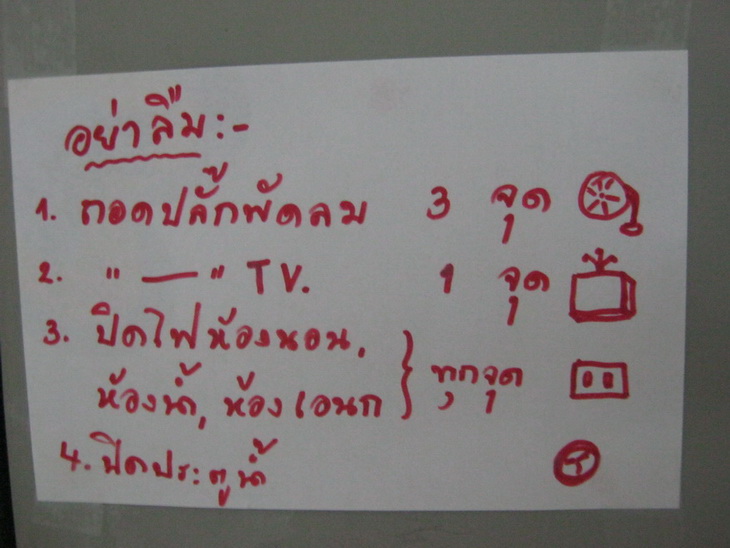 อย่าลืม:-
1. ถอดปลั๊กพัดลม 3 จุด
2. " — " TV. 1 จุด
3. ปิดไฟห้องนอน,
ห้องน้ำ, ห้องเอนก } ทุกจุด
4. ปิดประตูน้ำ